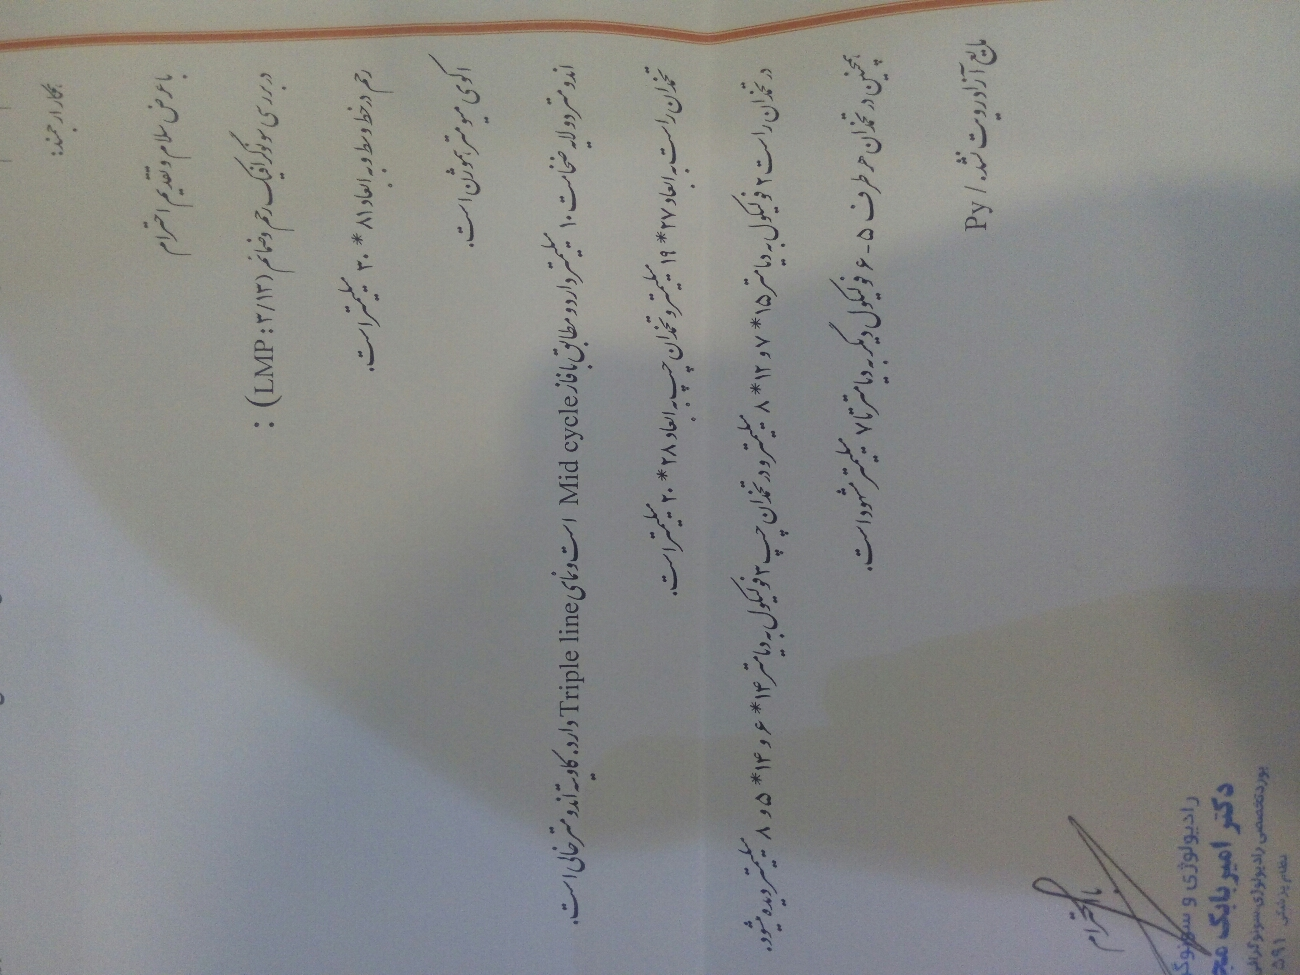 همکار ارجمند:
با عرض سلام و تقدیم احترام
در بررسی سونوگرافیک رحم و ضمائم (LMP: ۳/۱۳) :
رحم در خط وسط و به ابعاد ۸۱ * ۳۰ میلیمتر است.
اکوی میومتر هموژن است.
اندومتر دو لایه ضخامت ۱۰ میلیمتر دارد و مطابق با فاز Mid cycle است و نمای Triple line دارد. کاویته آندومتر خالی است.
تخمدان راست به ابعاد ۲۷ * ۱۹ میلیمتر و تخمدان چپ به ابعاد ۲۸ * ۲۰ میلیمتر است.
در تخمدان راست ۲ فولیکول به دیامتر ۱۵ * ۷ و ۱۲ * ۸ میلیمتر و در تخمدان چپ ۳ فولیکول به دیامتر ۱۴ * ۶ و ۱۴ * ۵ و ۸ میلیمتر دیده میشود.
همچنین در تخمدان هر طرف ۵ - ۶ فولیکول دیگر به دیامتر تا ۷ میلیمتر مشهود است.
مایع آزاد رویت نشد. / Py
با احترام
رادیولوژی و سونوگ
دکتر امیر بابک
بورد تخصصی رادیولوژی، سونوگرافی
نظام پزشکی ۵۹۱